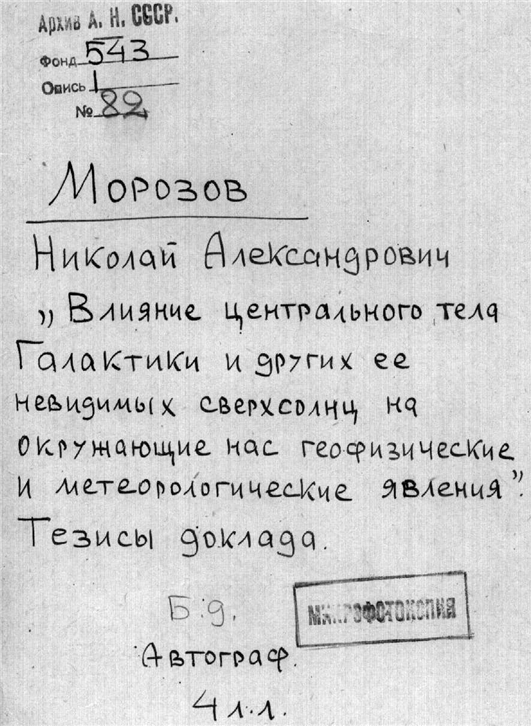 Архив А. Н. СССР.
Фонд 543
Опись 1
№ 82
Морозов
Николай Александрович
„Влияние центрального тела
Галактики и других ее
невидимых сверхсолнц на
окружающие нас геофизические
и метеорологические явления”.
Тезисы доклада.
Б.д.
МИКРОФОТОКОПИЯ
Автограф.
4 л.л.